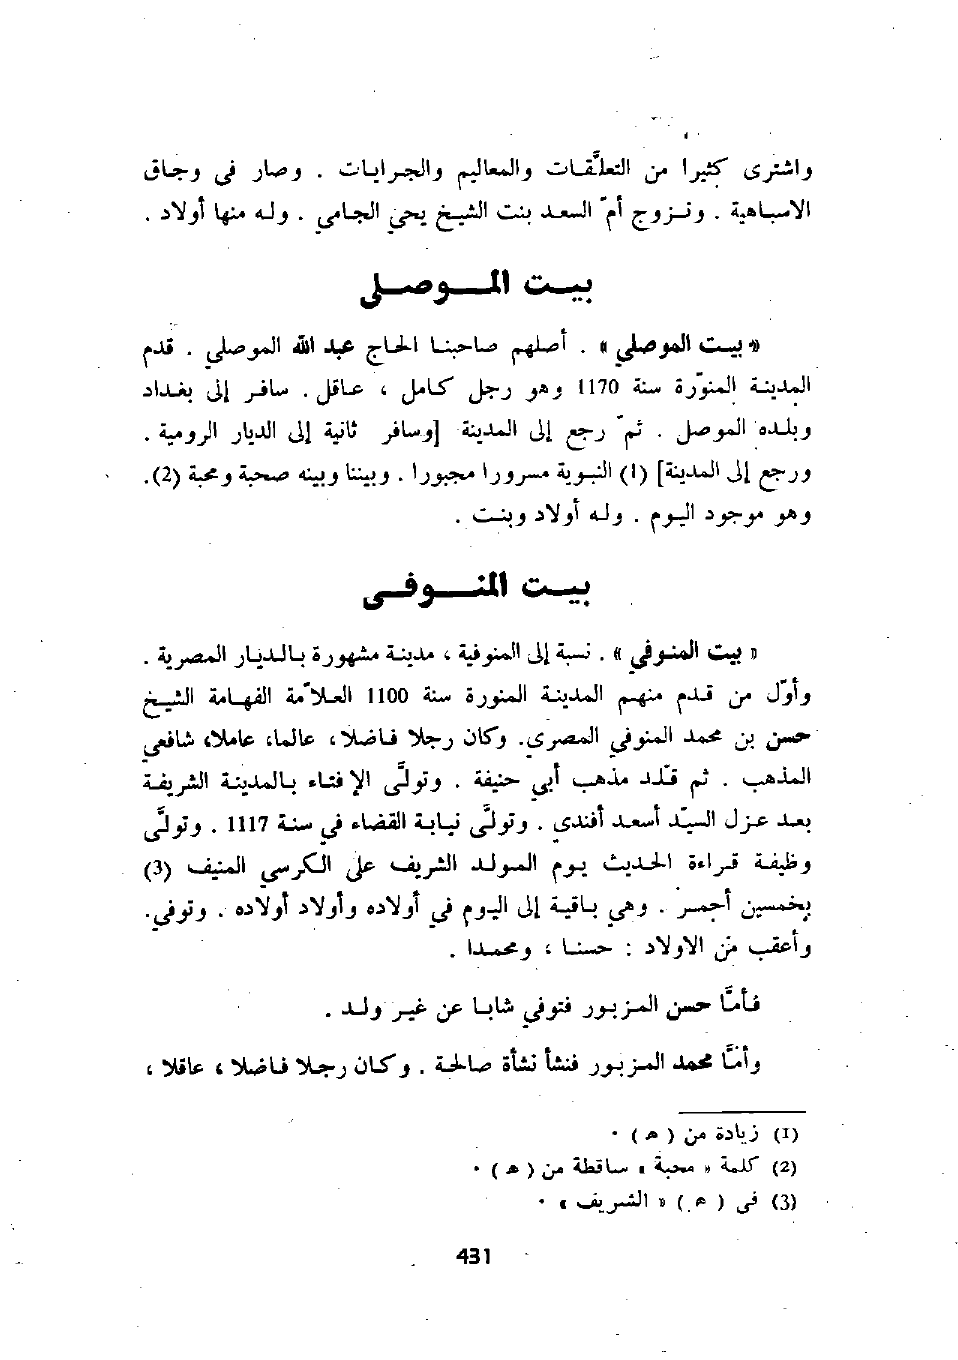 واشترى كثيرا من التعلَّقات والمعاليم والجرايات . وصار في وجاق
الاسباهية . وتزوج أمّ السعد بنت الشيخ يحي الجامي . وله منها أولاد .
بيت الموصلي
« بيت الموصلي » . أصلهم صاحبنا الحاج عبد الله الموصلي . قدم
المدينة المنوّرة سنة 1170 وهو رجل كامل ، عاقل . سافر إلى بغداد
وبلده الموصل . ثمّ رجع إلى المدينة [وسافر ثانية إلى الديار الرومية .
ورجع إلى المدينة] (1) النبوية مسرورا مجبورا . وبيننا وبينه صحبة ومحبة (2).
وهو موجود اليوم . وله أولاد وبنت .
بيت المنوفى
« بيت المنوفي » . نسبة إلى المنوفية ، مدينة مشهورة بالديار المصرية .
وأوّل من قدم منهم المدينة المنورة سنة 1100 العلاّمة الفهامة الشيخ
حسن بن محمد المنوفي المصري. وكان رجلا فاضلا، عالما، عاملا، شافعي
المذهب . ثم قلّد مذهب أبي حنيفة . وتولَّى الإفتاء بالمدينة الشريفة
بعد عزل السيّد أسعد أفندي . وتولَّى نيابة القضاء في سنة 1117 . وتولَّى
وظيفة قراءة الحديث يوم المولد الشريف على الكرسي المنيف (3)
بخمسين أحمر . وهي باقية إلى اليوم في أولاده وأولاد أولاده . وتوفي.
وأعقب من الاولاد : حسنا ، ومحمدا .
فأمَّا حسن المزبور فتوفي شابا عن غير ولد .
وأمَّا محمد المزبور فنشأ نشأة صالحة . وكان رجلا فاضلا ، عاقلا ،
(1) زيادة من ( هـ ) .
(2) كلمة « محبة » ساقطة من ( هـ ) .
(3) في ( م ) « الشريف » .
431